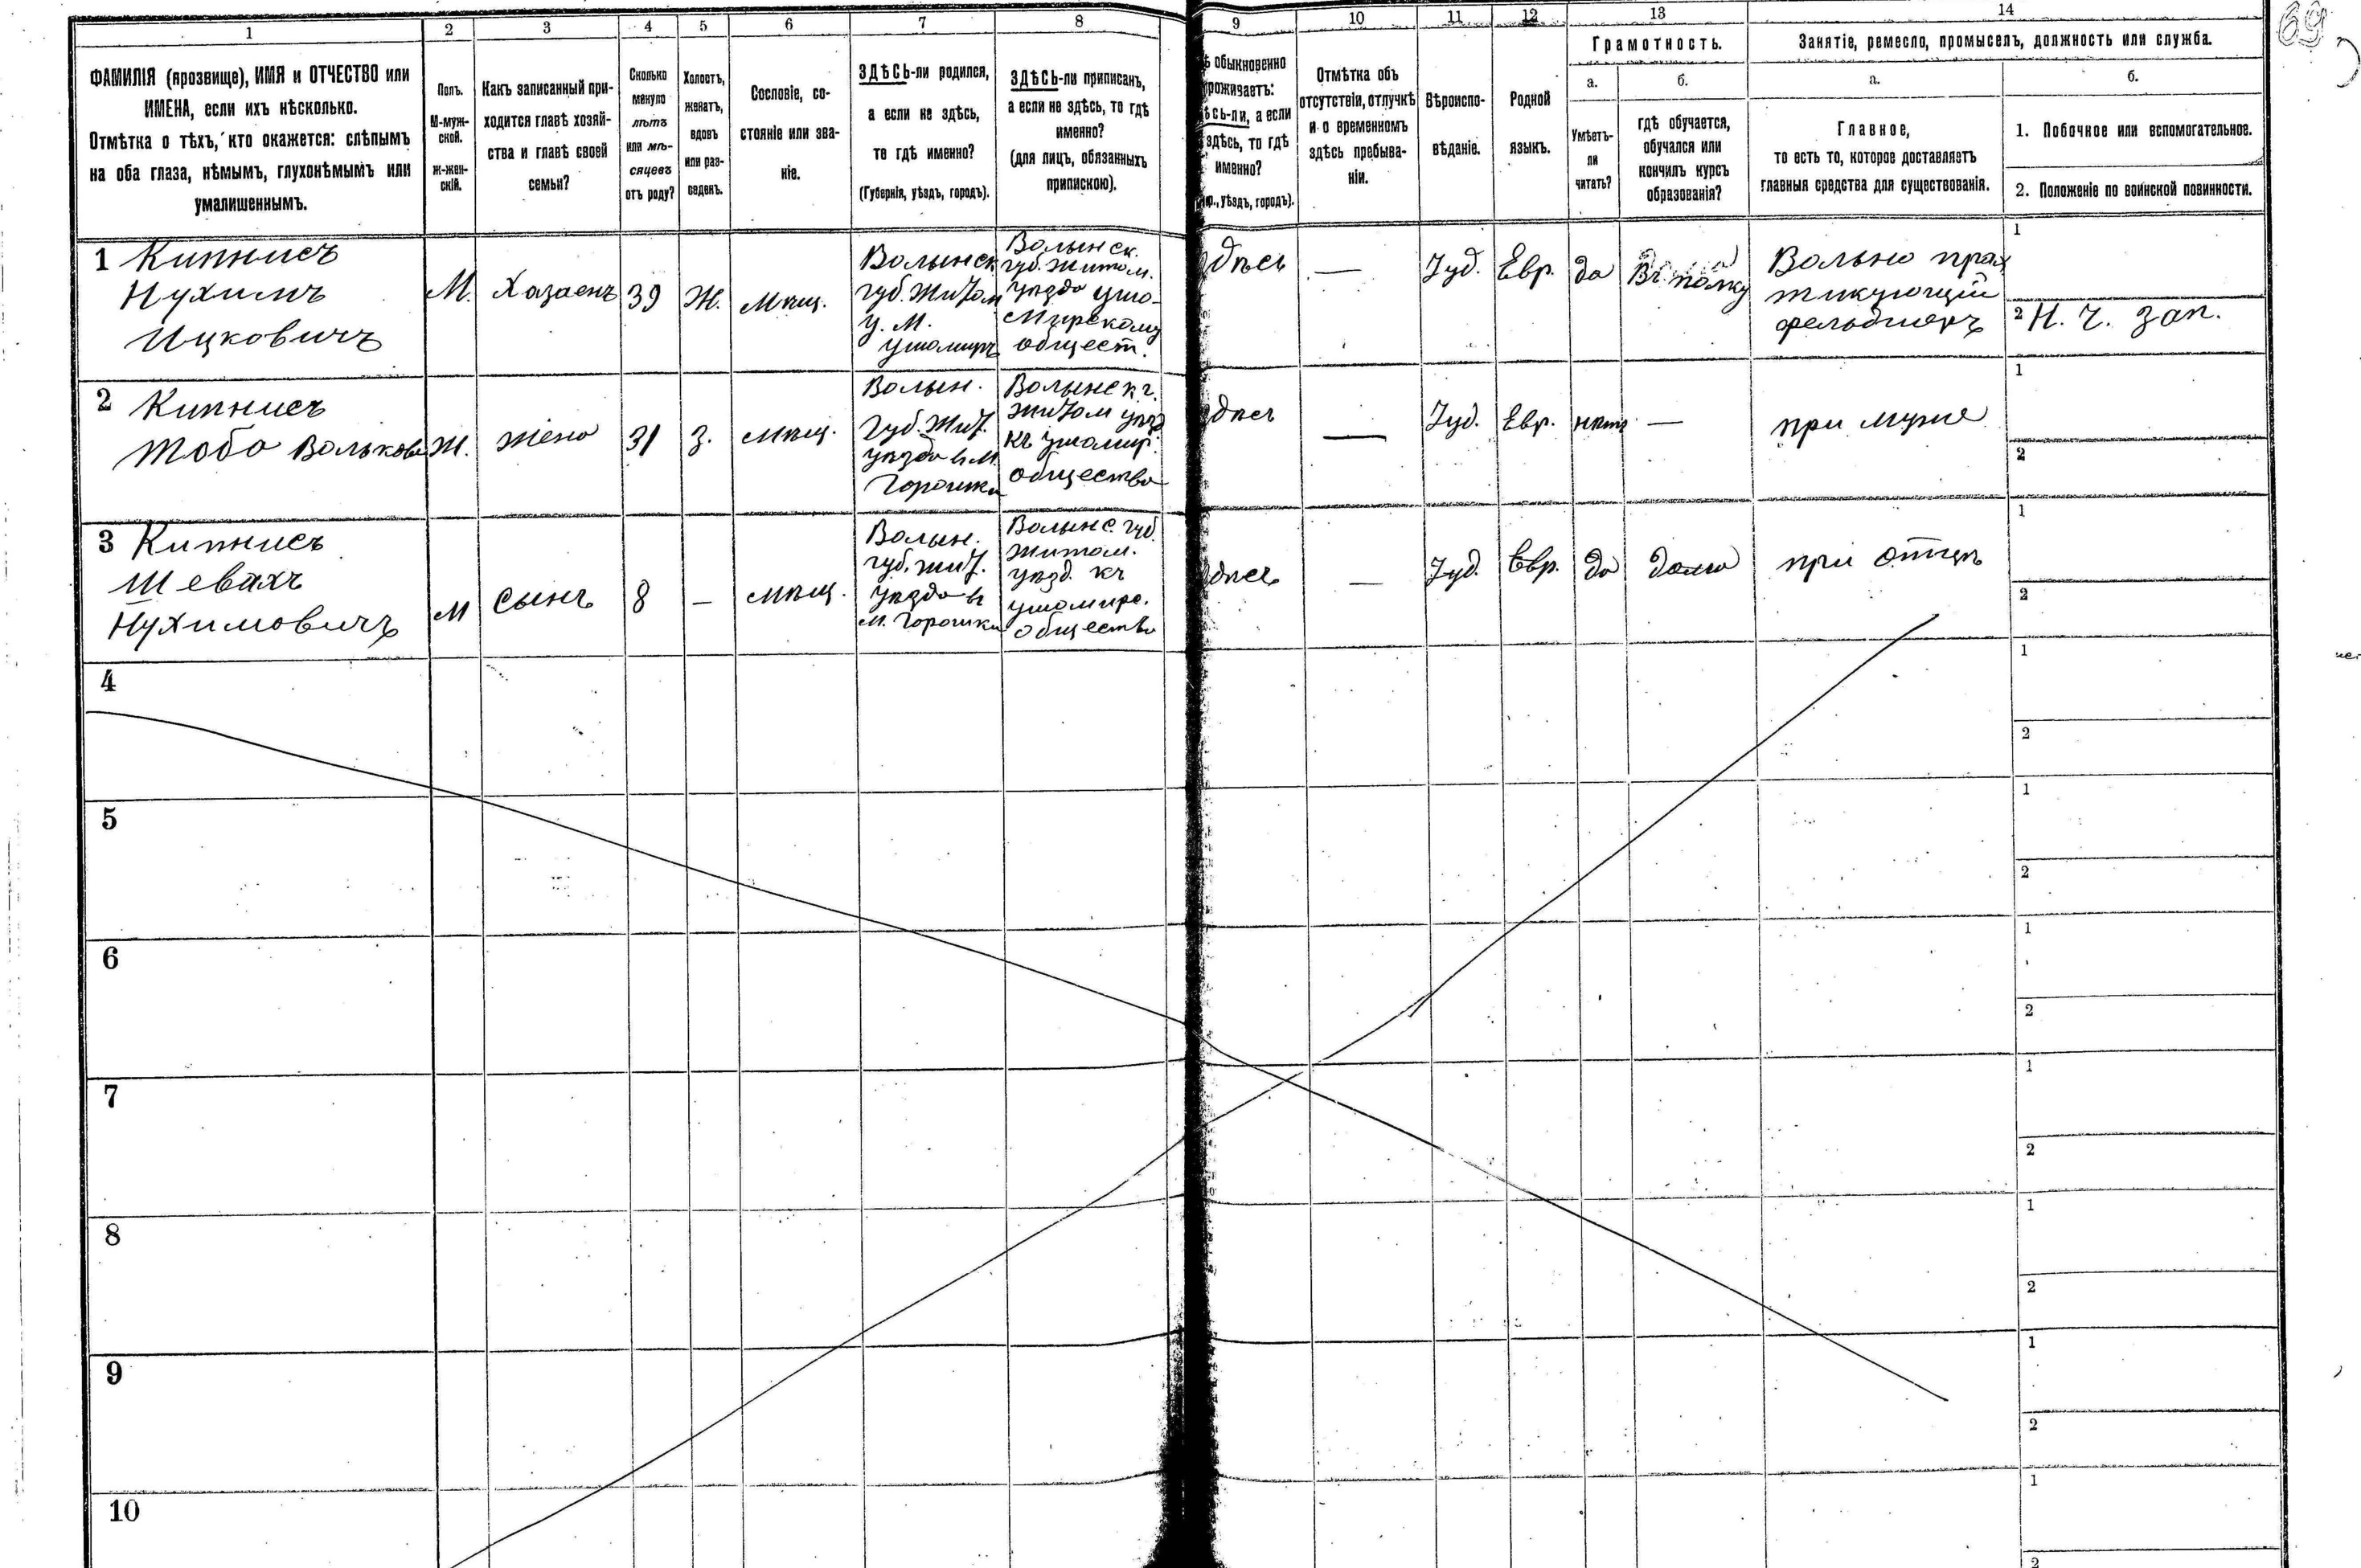 69
1 2 3 4 5 6 7 8 9 10 11 12 13 14
ФАМИЛІЯ (прозвище), ИМЯ и ОТЧЕСТВО или
ИМЕНА, если ихъ нѣсколько.
Отмѣтка о тѣхъ, кто окажется: слѣпымъ
на оба глаза, нѣмымъ, глухонѣмымъ или
умалишеннымъ.
Полъ.
М-муж-
ской.
ж-жен-
скій.
Какъ записанный при-
ходится главѣ хозяй-
ства и главѣ своей
семьи?
Сколько
минуло
лѣтъ
или мѣ-
сяцевъ
отъ роду?
Холостъ,
женатъ,
вдовъ
или раз-
веденъ.
Сословіе, со-
стояніе или зва-
ніе.
ЗДѢСЬ-ли родился,
а если не здѣсь,
то гдѣ именно?
(Губернія, уѣздъ, городъ).
ЗДѢСЬ-ли приписанъ,
а если не здѣсь, то гдѣ
именно?
(для лицъ, обязанныхъ
припискою).
обыкновенно
роживаетъ:
сь-ли, а если
здѣсь, то гдѣ
именно?
р., уѣздъ, городъ).
Отмѣтка объ
отсутствіи, отлучкѣ
и о временномъ
здѣсь пребыва-
ніи.
Вѣроиспо-
вѣданіе.
Родной
языкъ.
Грамотность.
а.
Умѣетъ-
ли
читать?
б.
гдѣ обучается,
обучался или
кончилъ курсъ
образованія?
Занятіе, ремесло, промыселъ, должность или служба.
а.
Главное,
то есть то, которое доставляетъ
главныя средства для существованія.
б.
1. Побочное или вспомогательное.
2. Положеніе по воинской повинности.
1 Кипнисъ
Нухимъ
Ицковичъ
М.
Хазаенъ
39
Ж.
Мѣщ.
Волынск
губ. Житом
у. М.
Ушомиръ
Волынск.
губ. Житом.
уѣзда Ушо-
мирскому
общест.
здѣсь
—
Іуд.
Евр.
да
Въ полку
Вольно прак
тикующій
фельдшеръ
1
2 Н. Ч. зап.
2 Кипнисъ
Тоба Волькова
Ж.
жена
31
З.
мѣщ.
Волын.
губ. Жит.
уѣзда в М.
Горошки
Волынск г.
Житом уѣзд
къ Ушомир.
общества
здѣсь
—
Іуд.
Евр.
нѣтъ
—
при муже
1
2
3 Кипнисъ
Шевахъ
Нухимовичъ
М
сынъ
8
—
мѣщ.
Волын.
губ. Жит.
уѣзда в
М. Горошки
Волынс. губ.
Житом.
уѣзд. къ
Ушомирс.
общества
здѣсь
—
Іуд.
Евр.
да
дома
при отцѣ
1
2
4
1
2
5
1
2
6
1
2
7
1
2
8
1
2
9
1
2
10
1
2